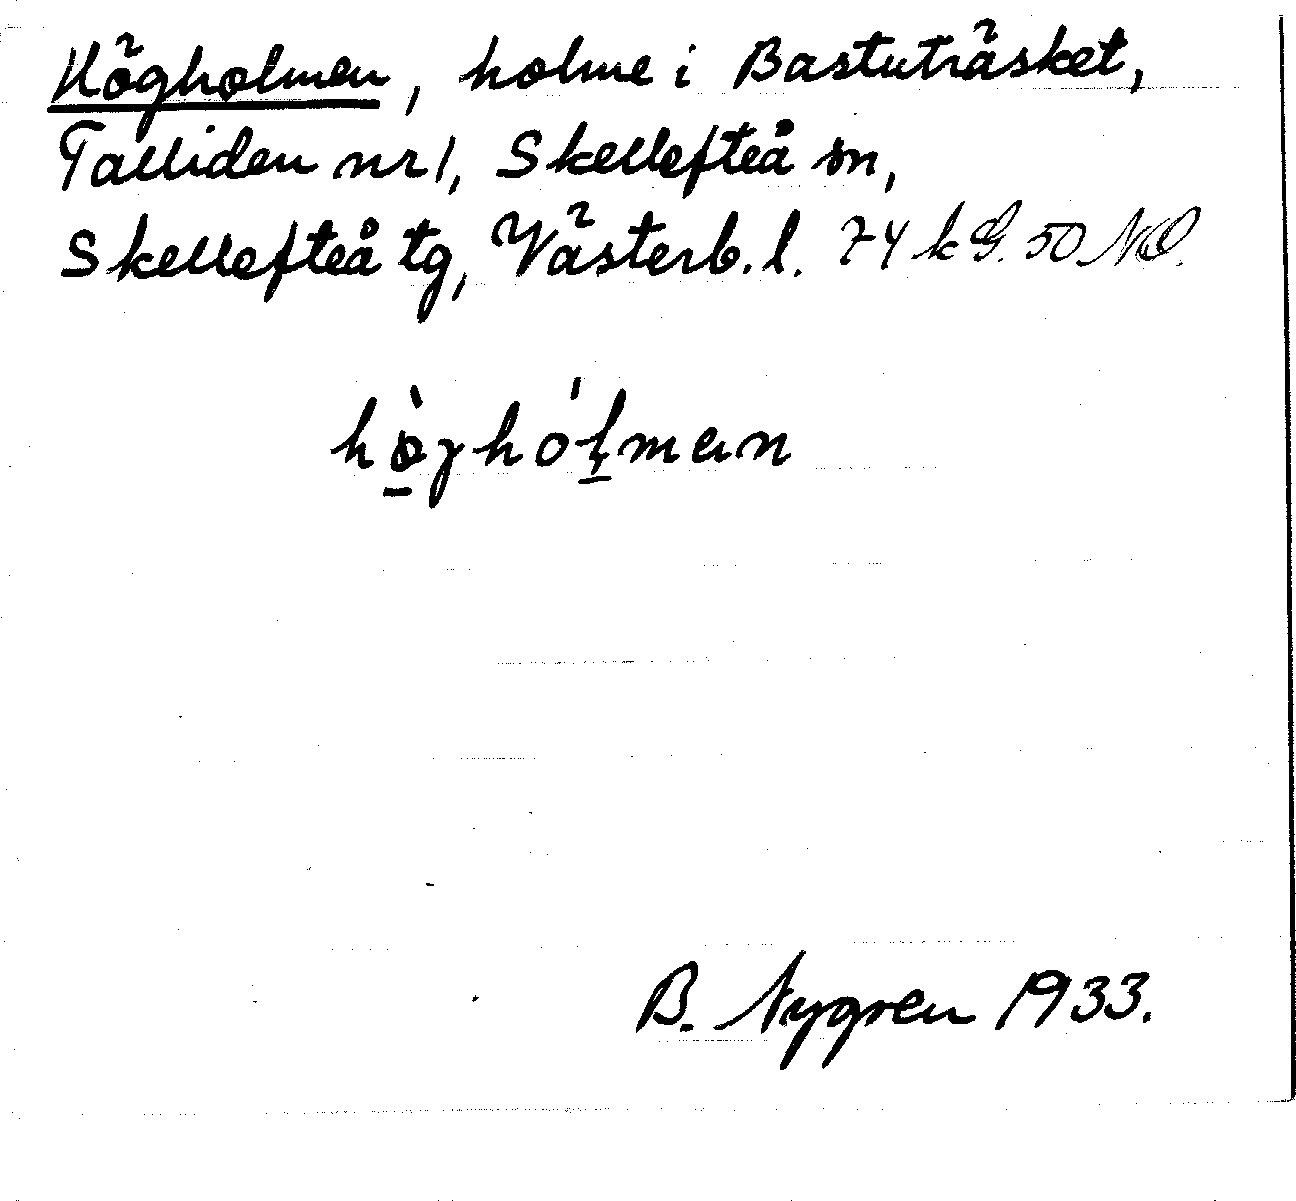 Högholmen, holme i Bastuträsket,
Talliden nr 1, Skellefteå sn,
Skellefteå tg, Västerb. l. 74 k G. 50 NO.
B. Nygren 1933.